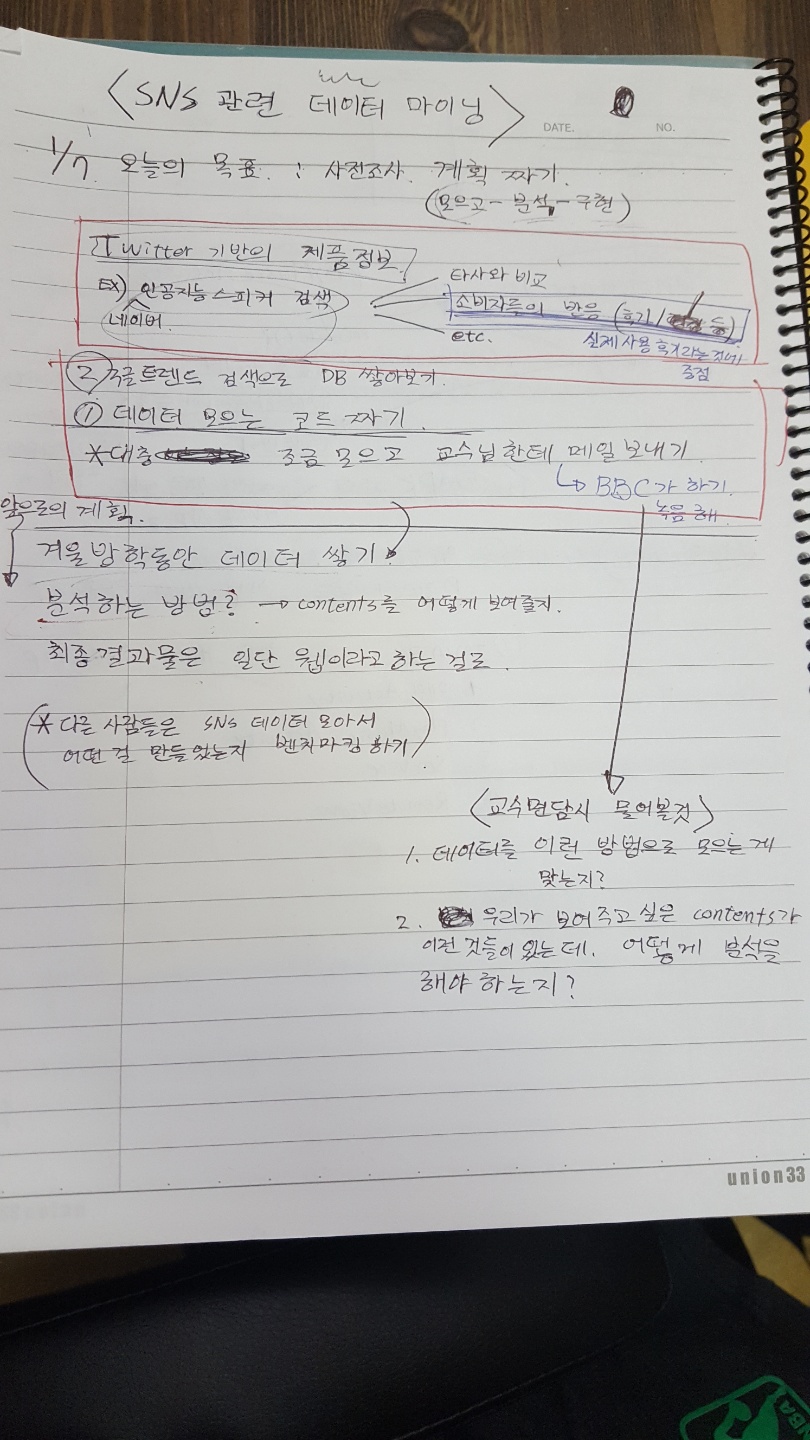 <SNS 관련 데이터 마이닝>
DATE. NO.
1/7 오늘의 목표 : 사전조사. 계획 짜기.
(모으고 - 분석 - 구현)
Twitter 기반의 제품정보
EX) 인공지능스피커 검색
네이버.
타사와 비교
소비자들의 반응 (후기/ 등)
etc.
실제사용 후기라는것에
중점
② 구글트렌드 검색으로 DB 쌓아보기.
① 데이터 모으는 코드 짜기.
*대충 조금 모으고 교수님한테 메일 보내기
↳ BBC가 하기.
녹음 해.
앞으로의 계획.
겨울방학동안 데이터 쌓기.
분석하는 방법? → contents를 어떻게 보여줄지.
최종결과물은 일단 웹이라고하는 걸로.
(* 다른 사람들은 SNS 데이터 모아서
어떤 걸 만들었는지 벤치마킹 하기)
<교수면담시 물어볼것>
1. 데이터를 이런 방법으로 모으는게
맞는지?
2. 우리가 보여주고 싶은 contents가
이런 것들이 있는데. 어떻게 분석을
해야 하는지?
union33